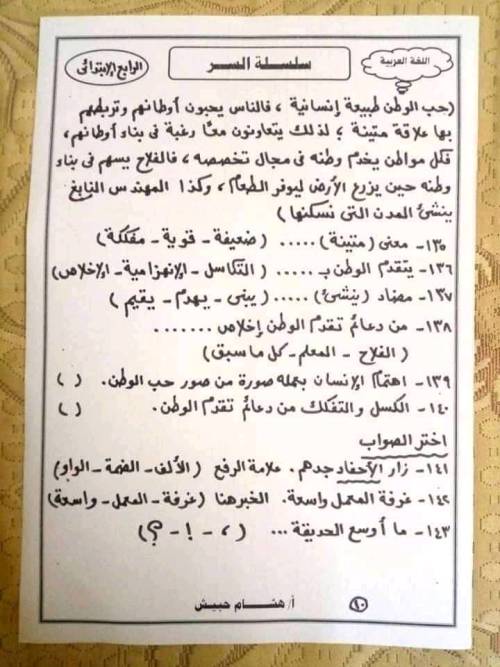 اللغة العربية
سلسلة السر
الرابع الابتدائى
(حب الوطن طبيعة إنسانية ، فالناس يحبون أوطانهم وتربطهم
بها علاقة متينة ؛ لذلك يتعاونون معًا رغبة فى بناء أوطانهم ،
فكل مواطن يخدم وطنه فى مجال تخصصه ، فالفلاح يسهم فى بناء
وطنه حين يزرع الأرض ليوفر الطعام ، وكذا المهندس النابغ
ينشئ المدن التى نسكنها )
١٣٥- معنى (متينة) ..... (ضعيفة - قوية - مفككة)
١٣٦- يتقدم الوطن بـ ..... (التكاسل - الإنهزامية - الإخلاص)
١٣٧- مضاد (ينشئ) ..... (يبنى - يهدم - يقيم )
١٣٨- من دعائم تقدم الوطن إخلاص .......
( الفلاح - المعلم - كل ما سبق)
١٣٩- اهتمام الإنسان بعمله صورة من صور حب الوطن. ( )
١٤٠- الكسل والتفكك من دعائم تقدم الوطن. ( )
اختر الصواب
١٤١- زار الأحفاد جدهم. علامة الرفع (الألف - الضمة - الواو)
١٤٢- غرفة المعمل واسعة. الخبر هنا (غرفة - المعمل - واسعة)
١٤٣- ما أوسع الحديقة ... (، - ! - ؟)
١٠
أ/ هشام حبيش